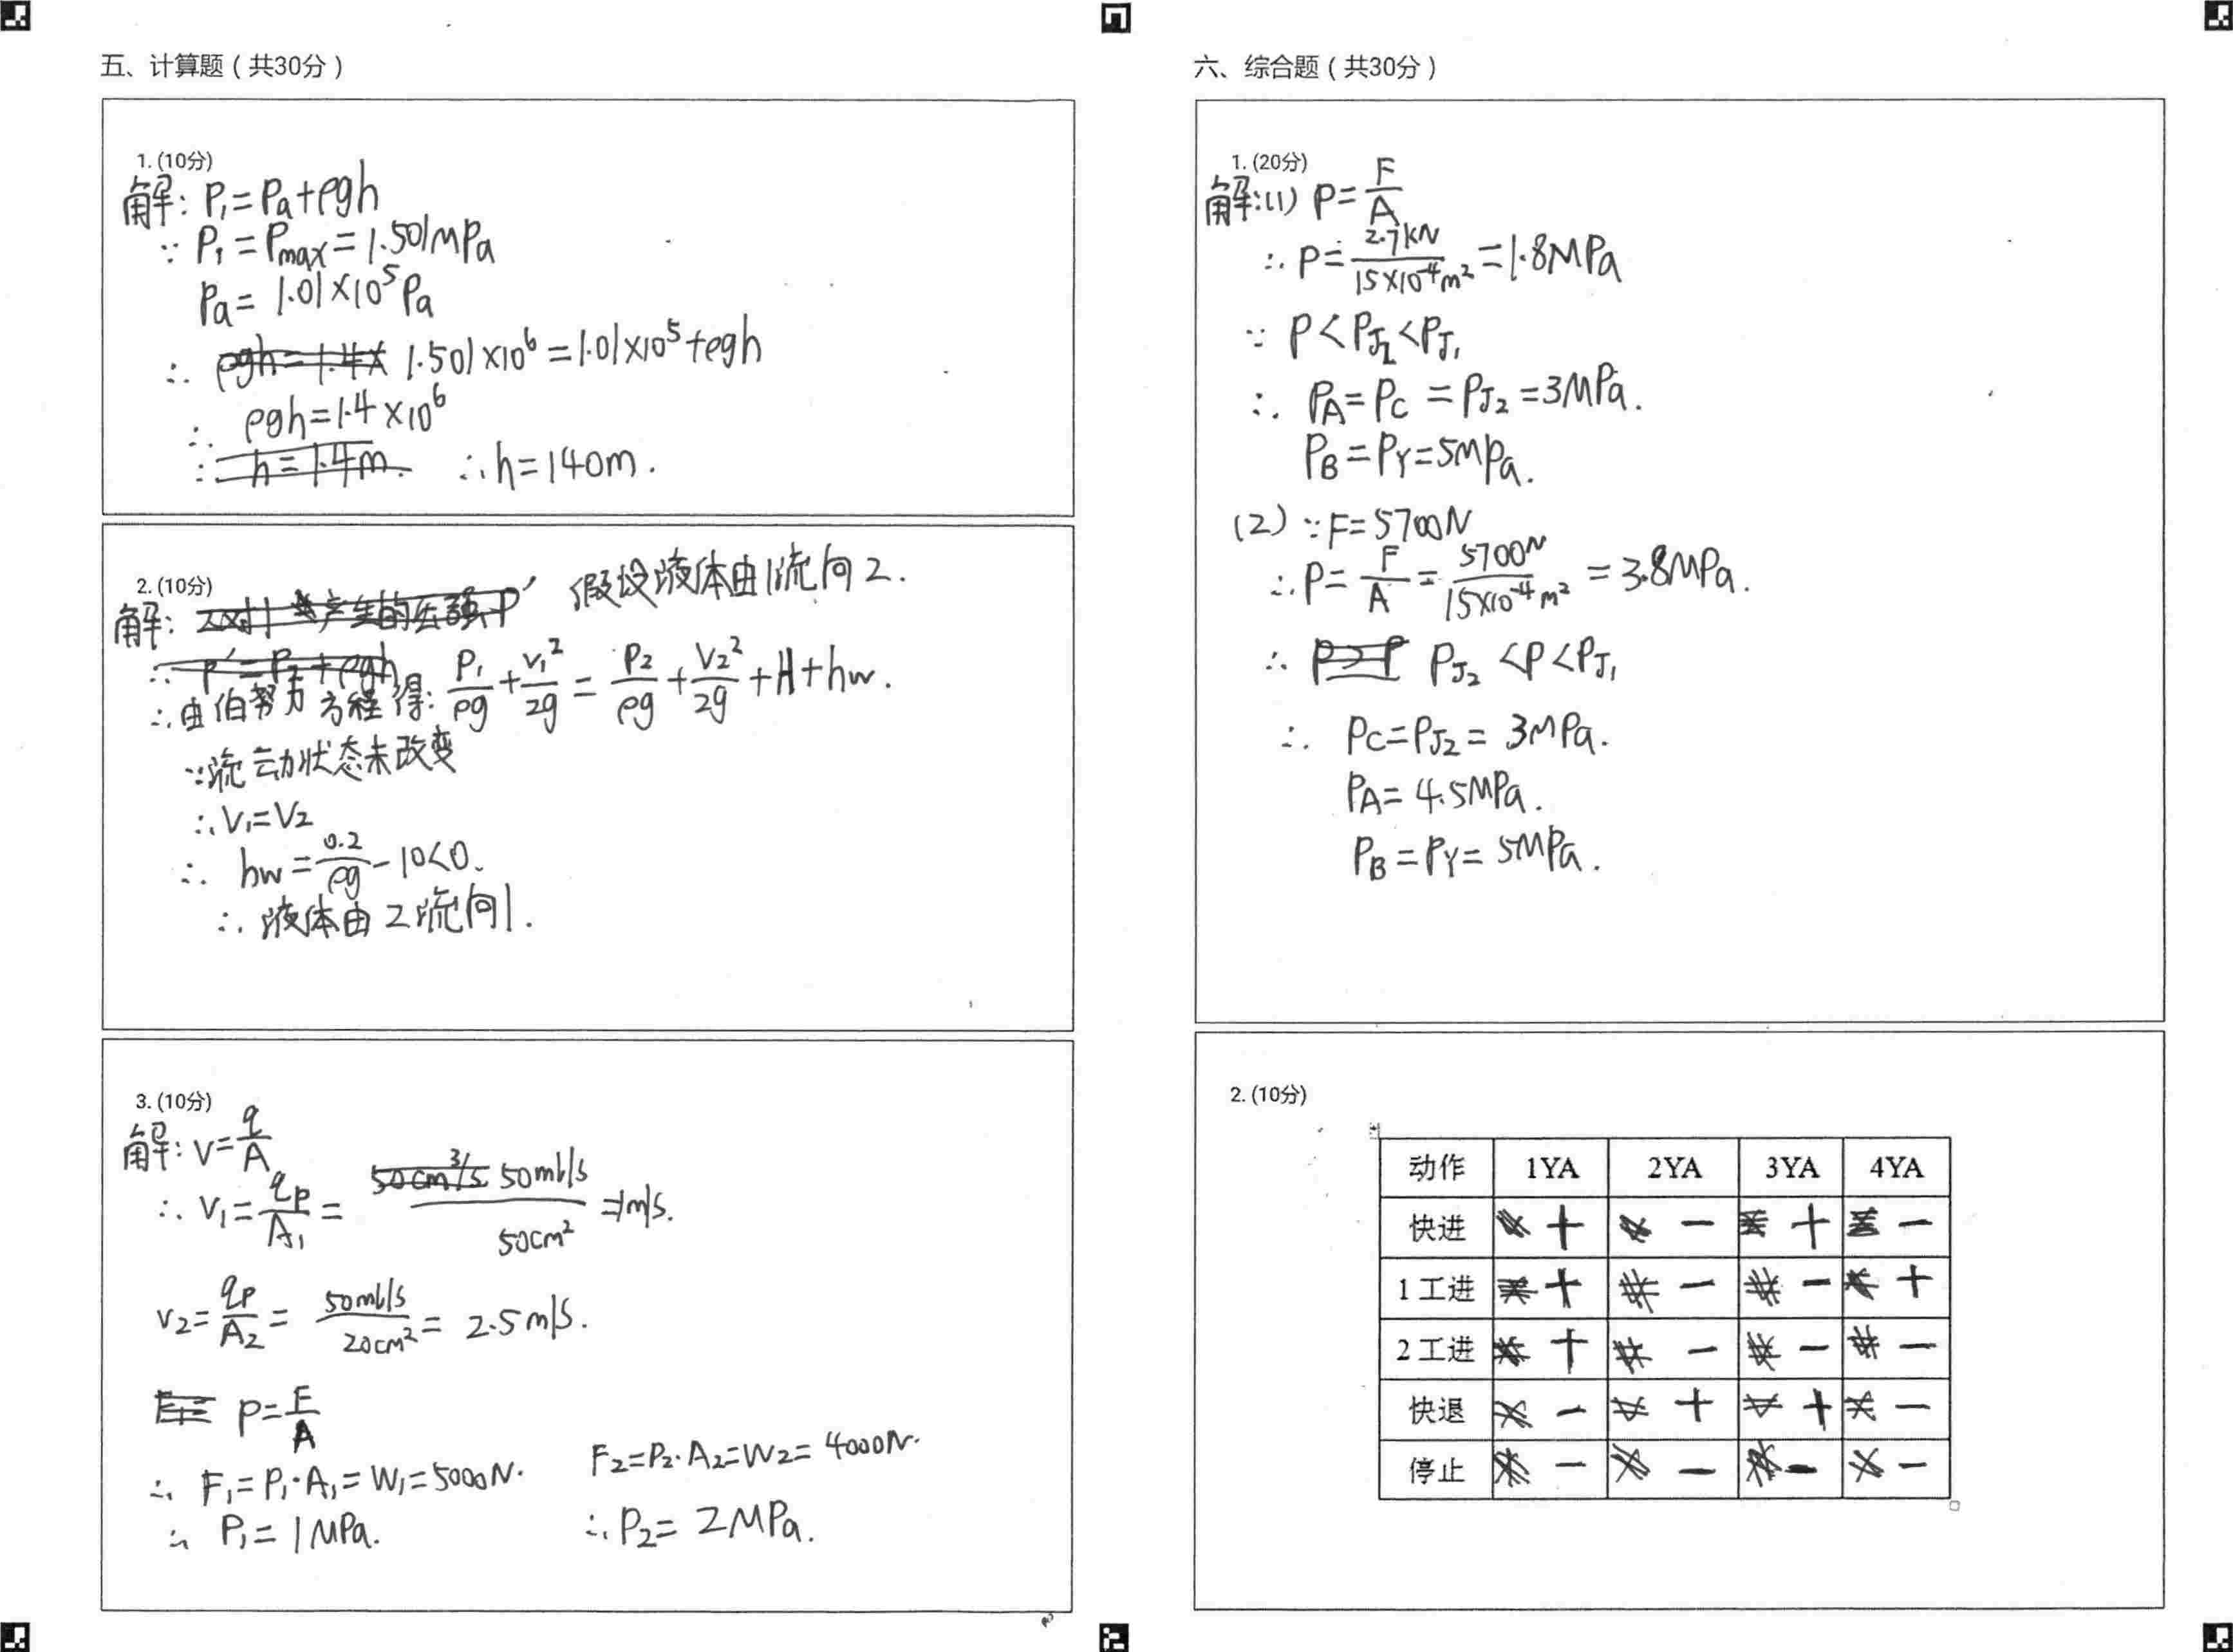 五、计算题（共30分）
1. (10分)
解: P₁=Pa+ρgh
∵ P₁=Pmax=1.501MPa
Pa=1.01×10⁵Pa
∴ ρgh=1.4× 1.501×10⁶=1.01×10⁵+ρgh
∴ ρgh=1.4×10⁶
∴ h=1.4m. ∴h=140m.
2. (10分)
解: 产生的压强P′ 假设液体由1流向2.
∴ P′=P₂+ρgh
∴由伯努力方程得: P₁/ρg+v₁²/2g=P₂/ρg+v₂²/2g+H+hw.
∵流动状态未改变
∴V₁=V₂
∴ hw=0.2/ρg-10<0.
∴ 液体由2流向1.
3. (10分)
解: V=q/A
∴ V₁=qp/A₁=50cm³/s 50ml/s/50cm²=1m/s.
V₂=qp/A₂=50ml/s/20cm²=2.5m/s.
P=F/A
∴ F₁=P₁·A₁=W₁=5000N. F₂=P₂·A₂=W₂=4000N.
∴ P₁=1MPa. ∴P₂=2MPa.
六、综合题（共30分）
1. (20分)
解:(1) P=F/A
∴ P=2.7kN/15×10⁻⁴m²=1.8MPa
∵ P<PJ₂<PJ₁
∴ PA=PC=PJ₂=3MPa.
PB=PY=5MPa.
(2) ∵F=5700N
∴P=F/A=5700N/15×10⁻⁴m²=3.8MPa.
∴ P>P PJ₂<P<PJ₁
∴ PC=PJ₂=3MPa.
PA=4.5MPa.
PB=PY=5MPa.
2. (10分)
动作 1YA 2YA 3YA 4YA
快进 + − + −
1工进 + − − +
2工进 + − − −
快退 − + + −
停止 − − − −